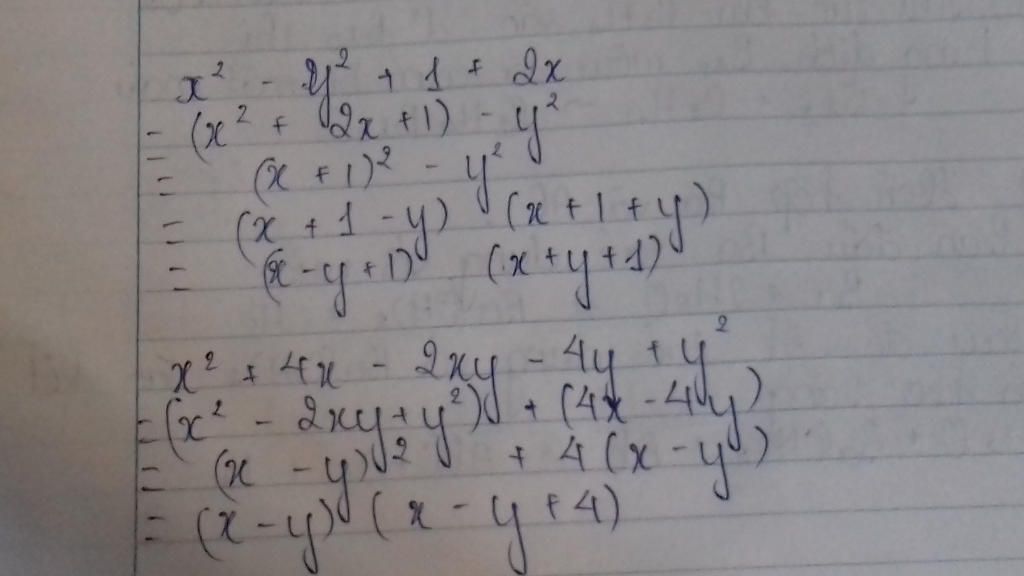 x² - y² + 1 + 2x
= (x² + 2x + 1) - y²
= (x + 1)² - y²
= (x + 1 - y) (x + 1 + y)
= (x - y + 1) (x + y + 1)
x² + 4x - 2xy - 4y + y²
= (x² - 2xy + y²) + (4x - 4y)
= (x - y)² + 4(x - y)
= (x - y) (x - y + 4)